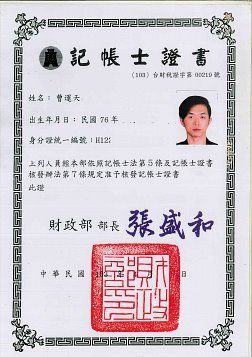 記帳士證書
（103）台財稅證字第00219號
姓名：曾運天
出生年月日：民國76年
身分證統一編號：H12
上列人員經本部依照記帳士法第5條及記帳士證書
核發辦法第7條規定准予核發記帳士證書
此證
財政部 部長 張盛和
中華民國